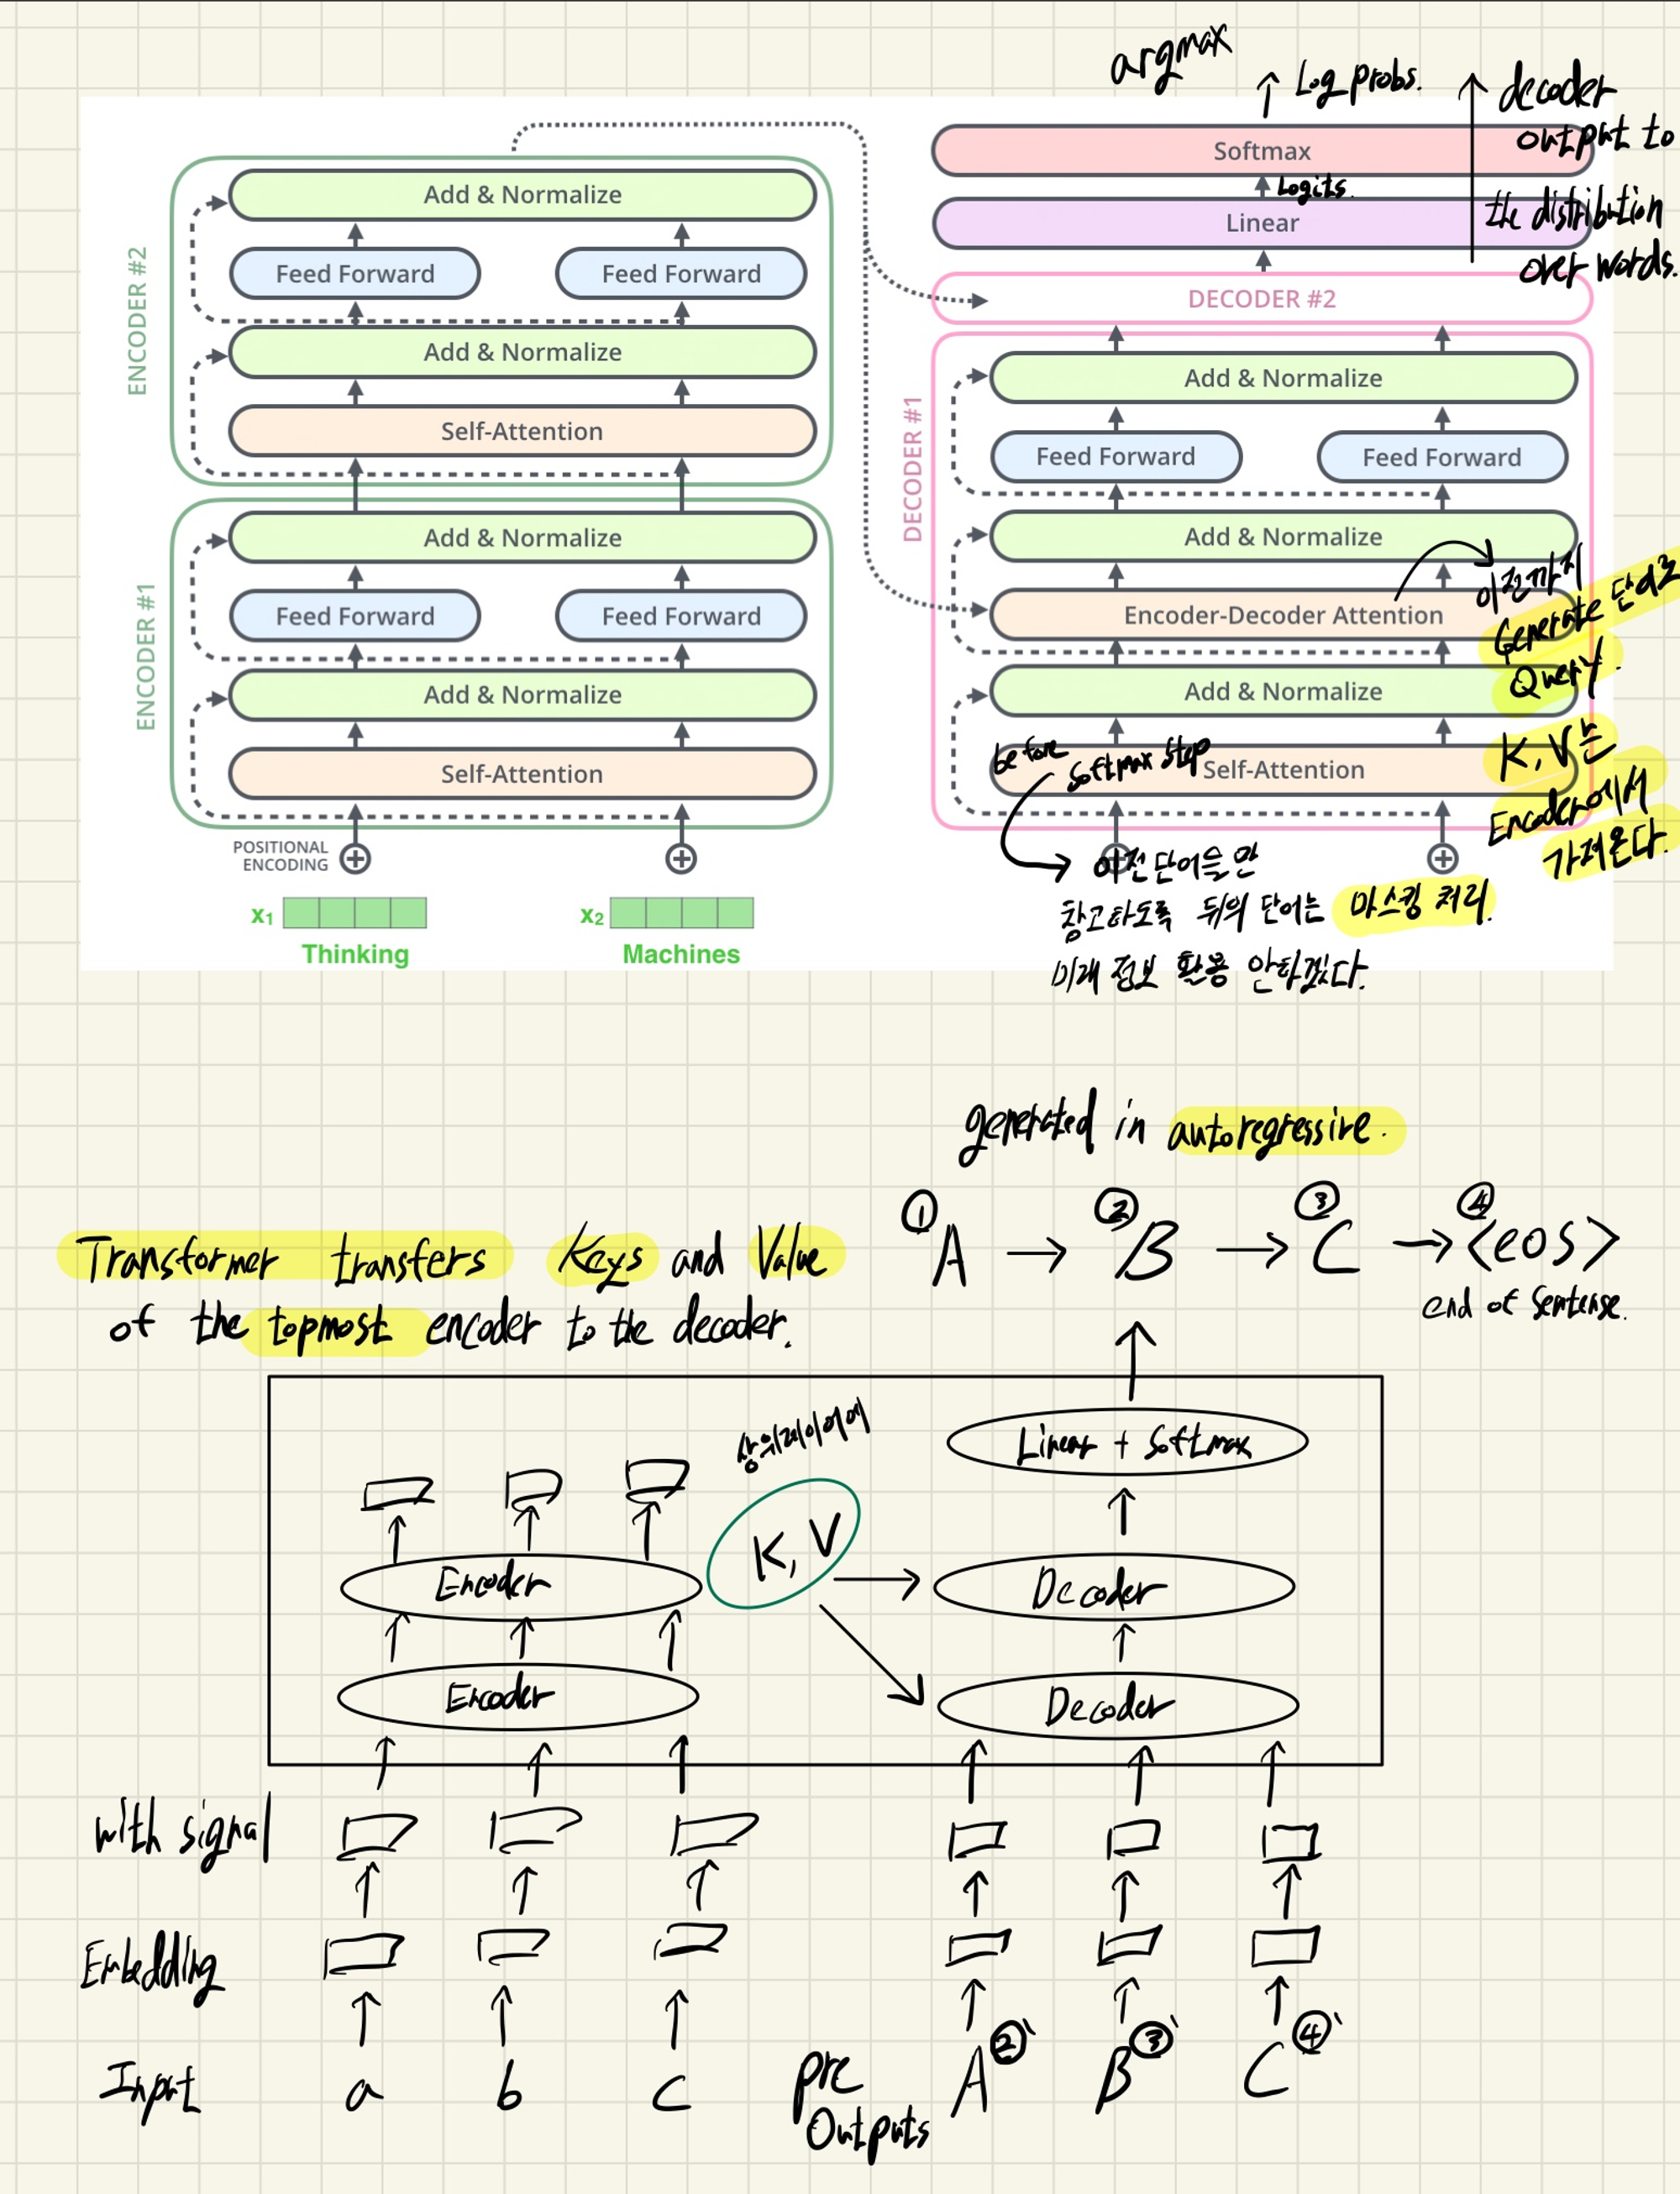 argmax
Log probs.
decoder
output to
the distribution
over words.
Softmax
Logits.
Linear
DECODER #2
ENCODER #2
Add & Normalize
Feed Forward
Feed Forward
Add & Normalize
Self-Attention
ENCODER #1
Add & Normalize
Feed Forward
Feed Forward
Add & Normalize
Self-Attention
POSITIONAL
ENCODING
x1
x2
Thinking
Machines
DECODER #1
Add & Normalize
Feed Forward
Feed Forward
Add & Normalize
Encoder-Decoder Attention
Add & Normalize
Self-Attention
이전까지
Generate 단어로
Query.
K, V는
Encoder에서
가져온다.
before
Softmax step
이전 단어들만
참고하도록 뒤의 단어는 마스킹 처리.
미래 정보 활용 안하겠다.
generated in autoregressive.
① A → ② B → ③ C → ④ <eos>
end of sentense.
Transformer transfers Keys and Value
of the topmost encoder to the decoder.
상위레이어에
K, V
Linear + Softmax
Encoder
Decoder
Encoder
Decoder
with signal
Embedding
Input
a b c
pre
Outputs
A ②` B ③` C ④`